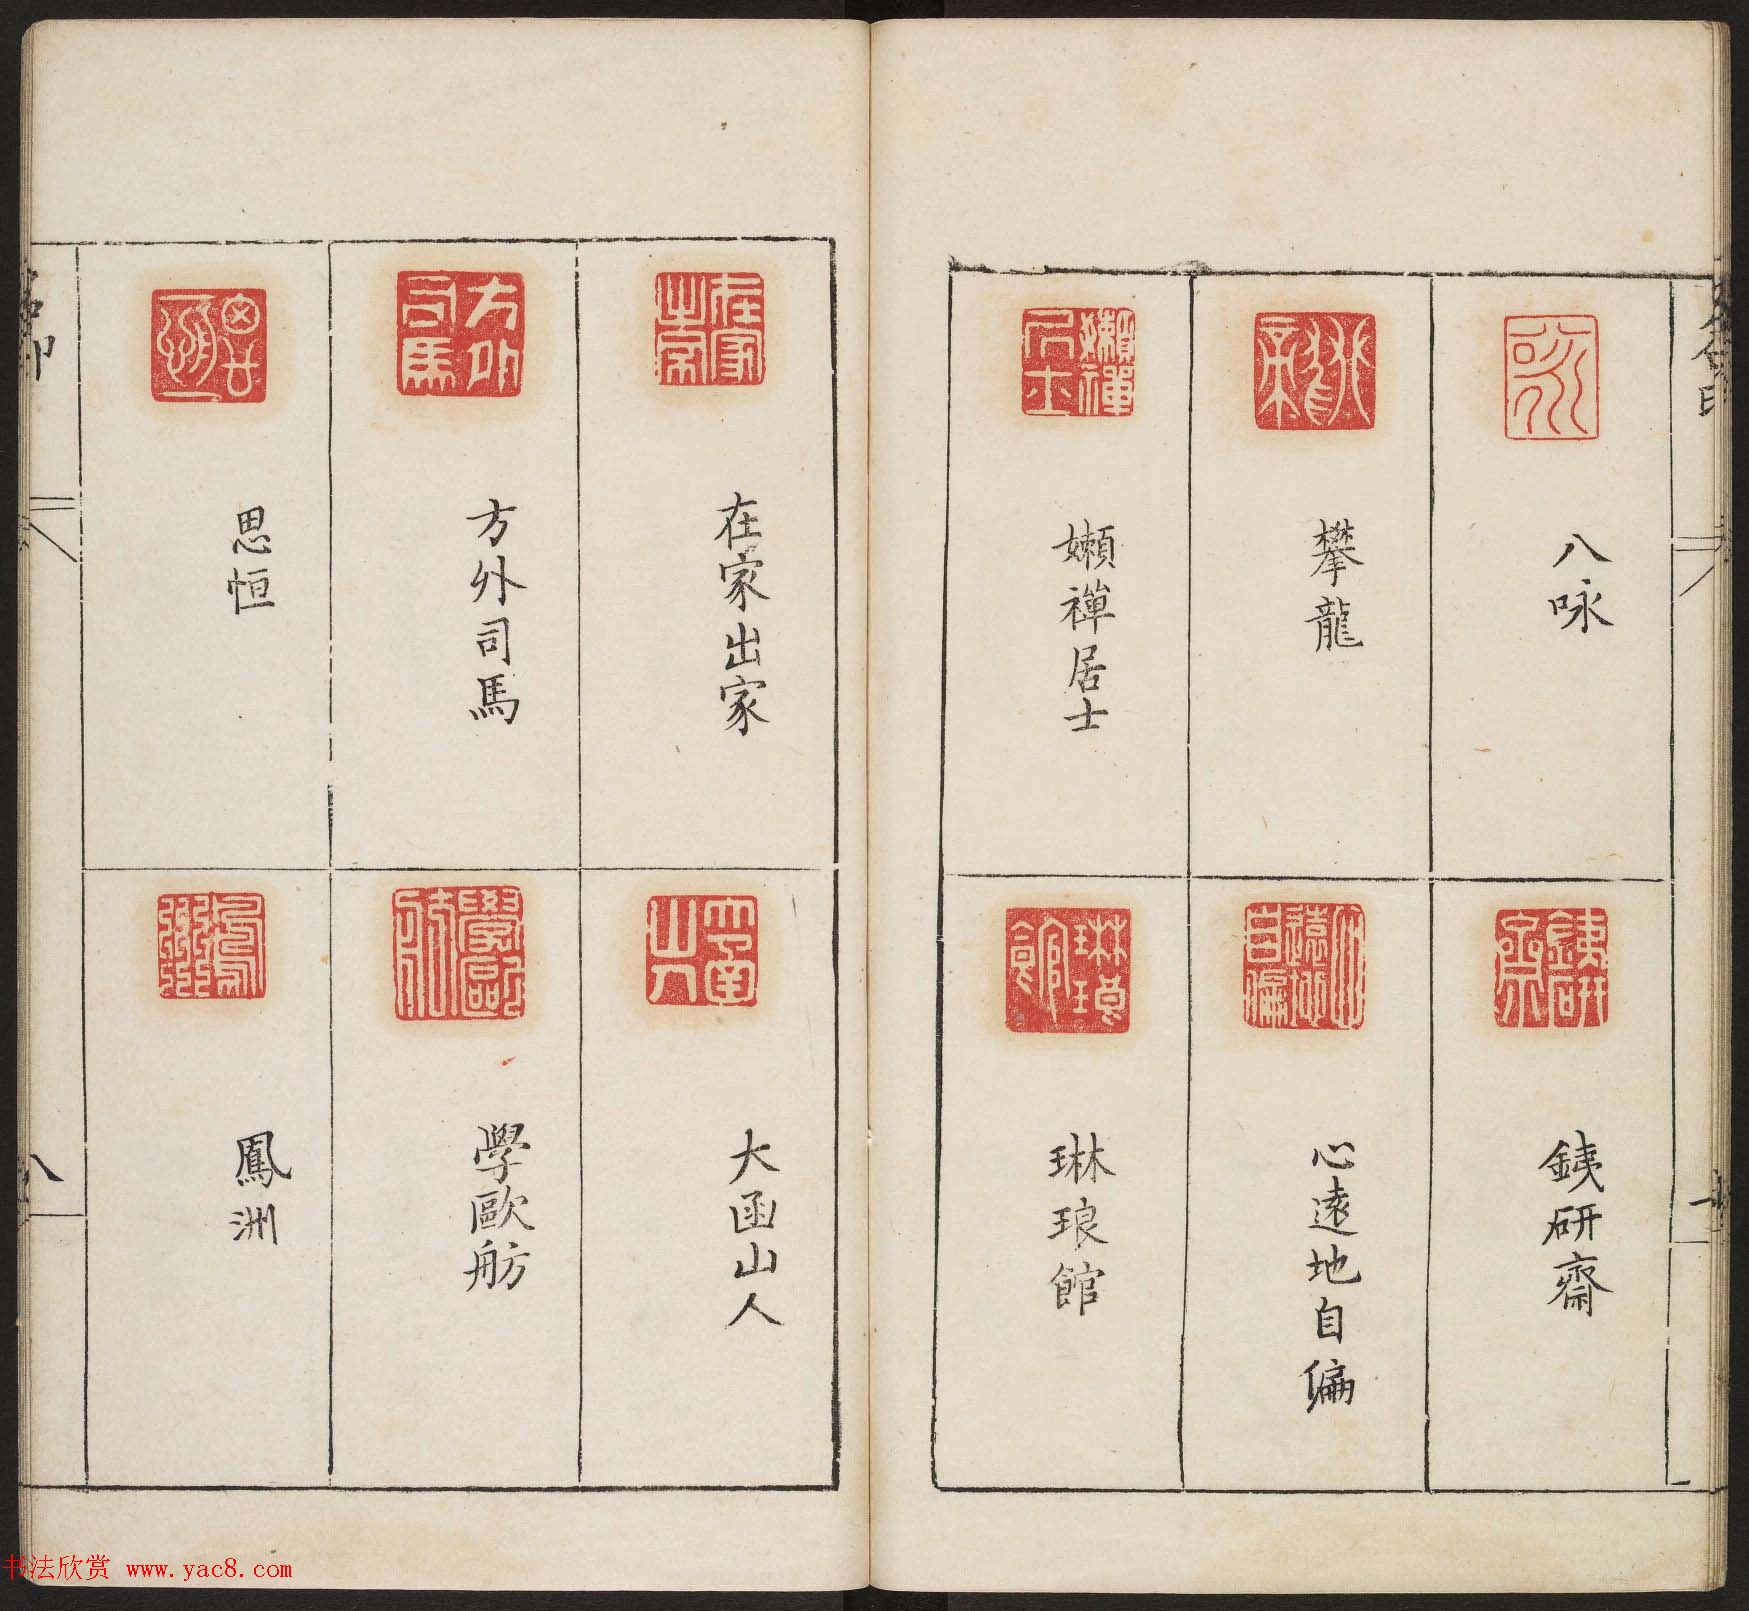 八咏
攀龍
嬾禪居士
銕研齋
心遠地自偏
琳琅館
在家出家
方外司馬
思恒
大函山人
學歐舫
鳳洲
八
书法欣赏 www.yac8.com